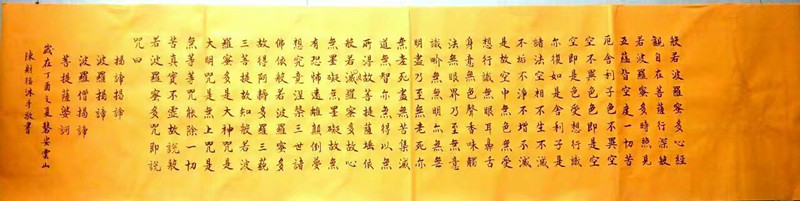 般若波羅蜜多心經
觀自在菩薩行深般
若波羅蜜多時照見
五蘊皆空度一切苦
厄舍利子色不異空
空不異色色即是空
空即是色受想行識
亦復如是舍利子是
諸法空相不生不滅
不垢不淨不增不減
是故空中無色無受
想行識無眼耳鼻舌
身意無色聲香味觸
法無眼界乃至無意
識界無無明亦無無
明盡乃至無老死亦
無老死盡無苦集滅
道無智亦無得以無
所得故菩提薩埵依
般若波羅蜜多故心
無罣礙無罣礙故無
有恐怖遠離顛倒夢
想究竟涅槃三世諸
佛依般若波羅蜜多
故得阿耨多羅三藐
三菩提故知般若波
羅蜜多是大神咒是
大明咒是無上咒是
無等等咒能除一切
苦真實不虛故說般
若波羅蜜多咒即說
咒曰
揭諦揭諦
波羅揭諦
波羅僧揭諦
菩提薩婆訶
歲在丁酉之夏安雲山
陳財福沐手敬書